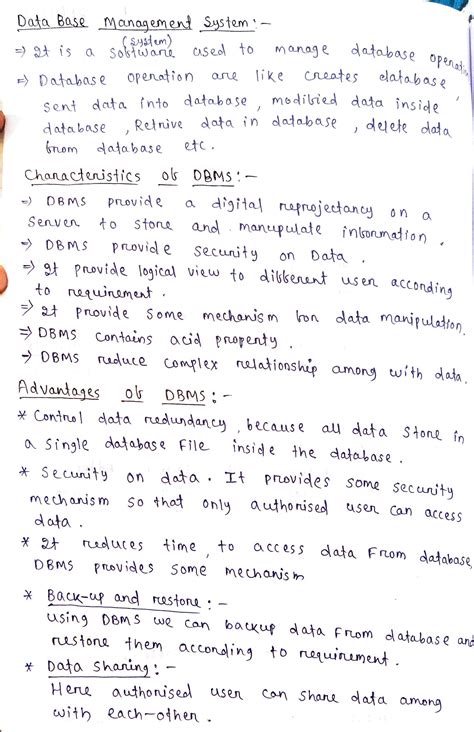 Data Base Management System :-
(system)
⇒ It is a software used to manage database operation
⇒ Database operation are like creates database,
sent data into database, modified data inside
database, Retrive data in database, delete data
from database etc.
Characteristics of DBMS :-
⇒ DBMS provide a digital reprojectancy on a
server to store and manupulate information.
⇒ DBMS provide security on Data.
⇒ It provide logical view to different user according
to requirement.
⇒ It provide some mechanism for data manipulation.
⇒ DBMS contains acid property.
⇒ DBMS reduce complex relationship among with data.
Advantages of DBMS :-
* Control data redundancy, because all data store in
a single database File inside the database.
* Security on data. It provides some security
mechanism so that only authorised user can access
data.
* It reduces time, to access data From database,
DBMS provides some mechanism
* Back-up and restore :-
using DBMS we can backup data From database and
restore them according to requirement.
* Data Sharing :-
Here authorised user can share data among
with each-other.